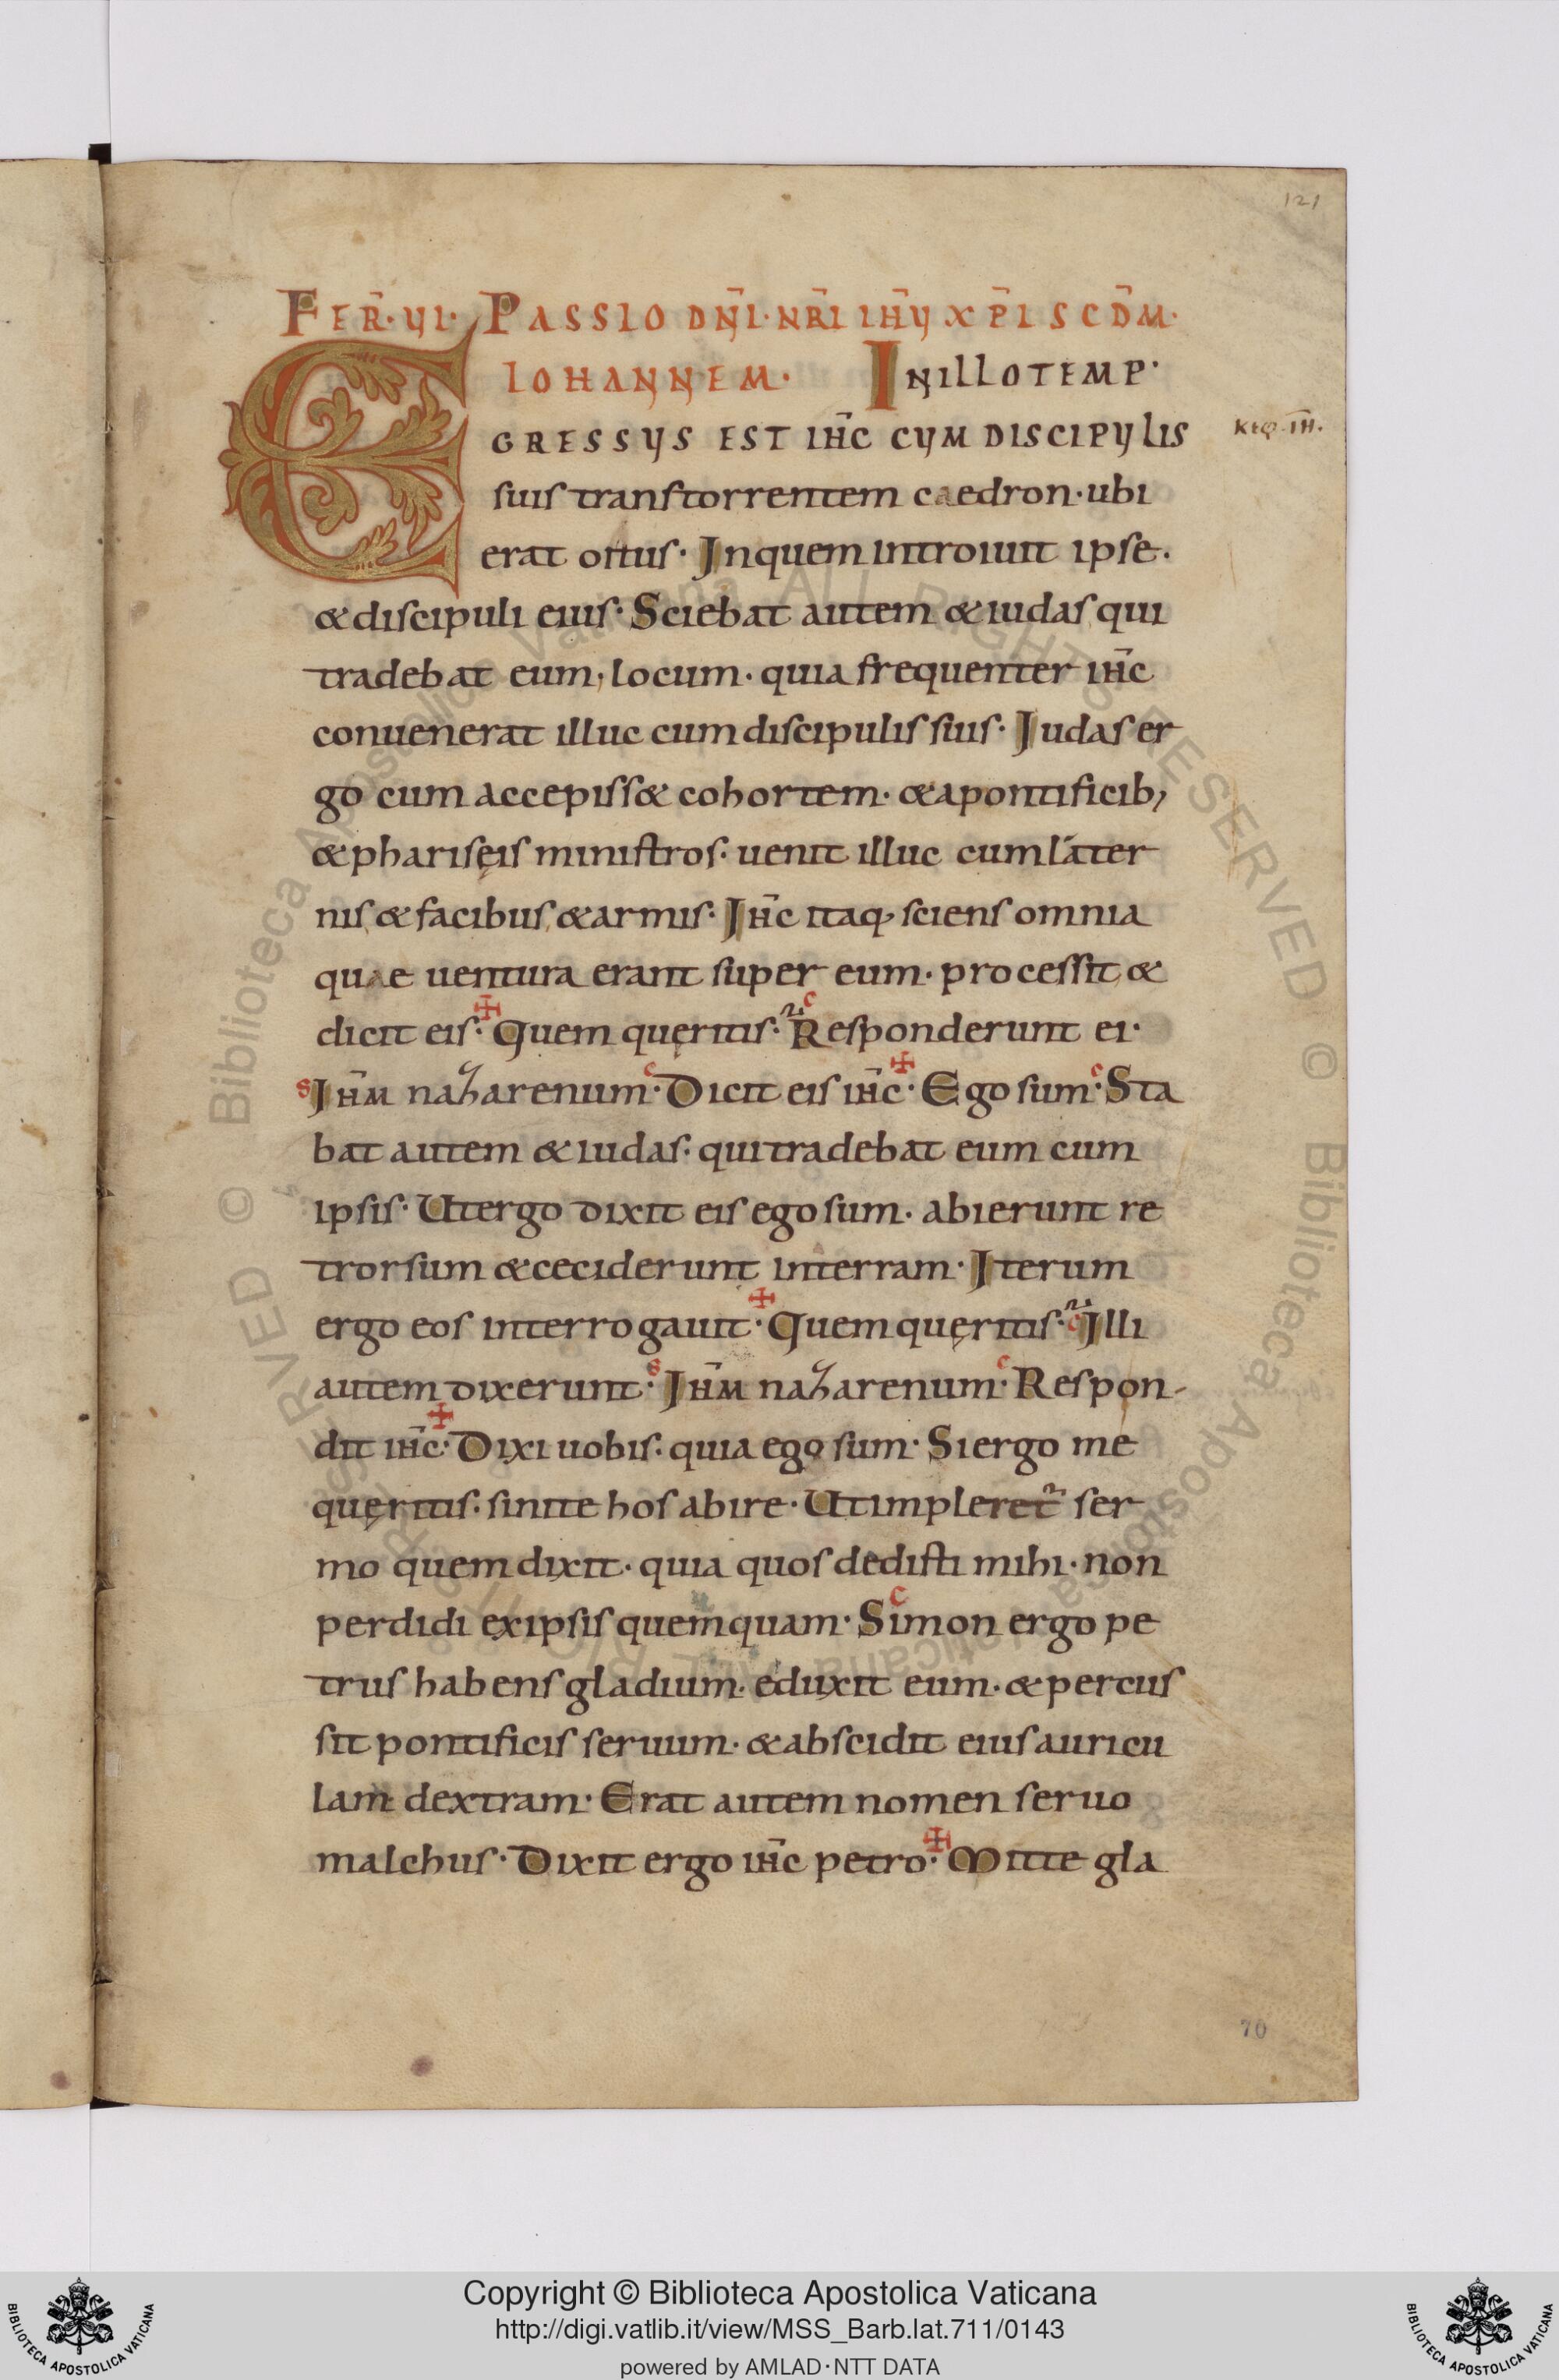 121
FER̄·VI· PASSIO DN̄I·NR̄I IH̄V XP̄I SCD̄M·
IOHANNEM· IN ILLO TEMP·
EGRESSVS EST IH̄C CVM DISCIPVLIS
suis trans torrentem caedron· ubi
erat ortus· In quem introiuit ipse·
& discipuli eius· Sciebat autem & iudas qui
tradebat eum, locum· quia frequenter ih̄c
conuenerat illuc cum discipulis suis· Iudas er
go cum accepiss& cohortem· & a pontificib;
& pharisęis ministros· uenit illuc cum later
nis & facibus & armis· Ih̄c itaq· sciens omnia
quae uentura erant super eum· processit &
dicit eis· Quem quęritis· Responderunt ei·
Ih̄m nazarenum· Dicit eis ih̄c· Ego sum· Sta
bat autem & iudas· qui tradebat eum cum
ipsis· Ut ergo dixit eis ego sum· abierunt re
trorsum & ceciderunt in terram· Iterum
ergo eos interrogauit· Quem quęritis· Illi
autem dixerunt· Ih̄m nazarenum· Respon-
dit ih̄c· Dixi uobis· quia ego sum· Si ergo me
quęritis· sinite hos abire· Ut impleret᷑ ser
mo quem dixit· quia quos dedisti mihi· non
perdidi ex ipsis quemquam· Simon ergo pe
trus habens gladium· eduxit eum· & percus
sit pontificis seruum· & abscidit eius auricu
lam dextram· Erat autem nomen seruo
malchus· Dixit ergo ih̄c petro· Mitte gla
70
Copyright © Biblioteca Apostolica Vaticana
http://digi.vatlib.it/view/MSS_Barb.lat.711/0143
powered by AMLAD·NTT DATA
BIBLIOTECA APOSTOLICA VATICANA
BIBLIOTECA APOSTOLICA VATICANA